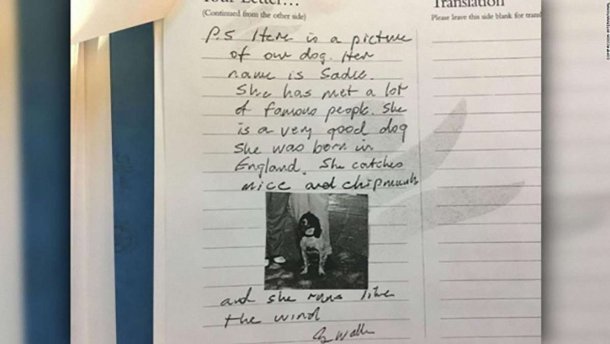 Your Letter...
(Continued from the other side)
P.S Here is a picture
of our dog. Her
name is Sadie.
She has met a lot
of famous people. She
is a very good dog
She was born in
England. She catches
mice and chipmunks
and she runs like
the wind
G. Walker
Translation
Please leave this side blank for transl